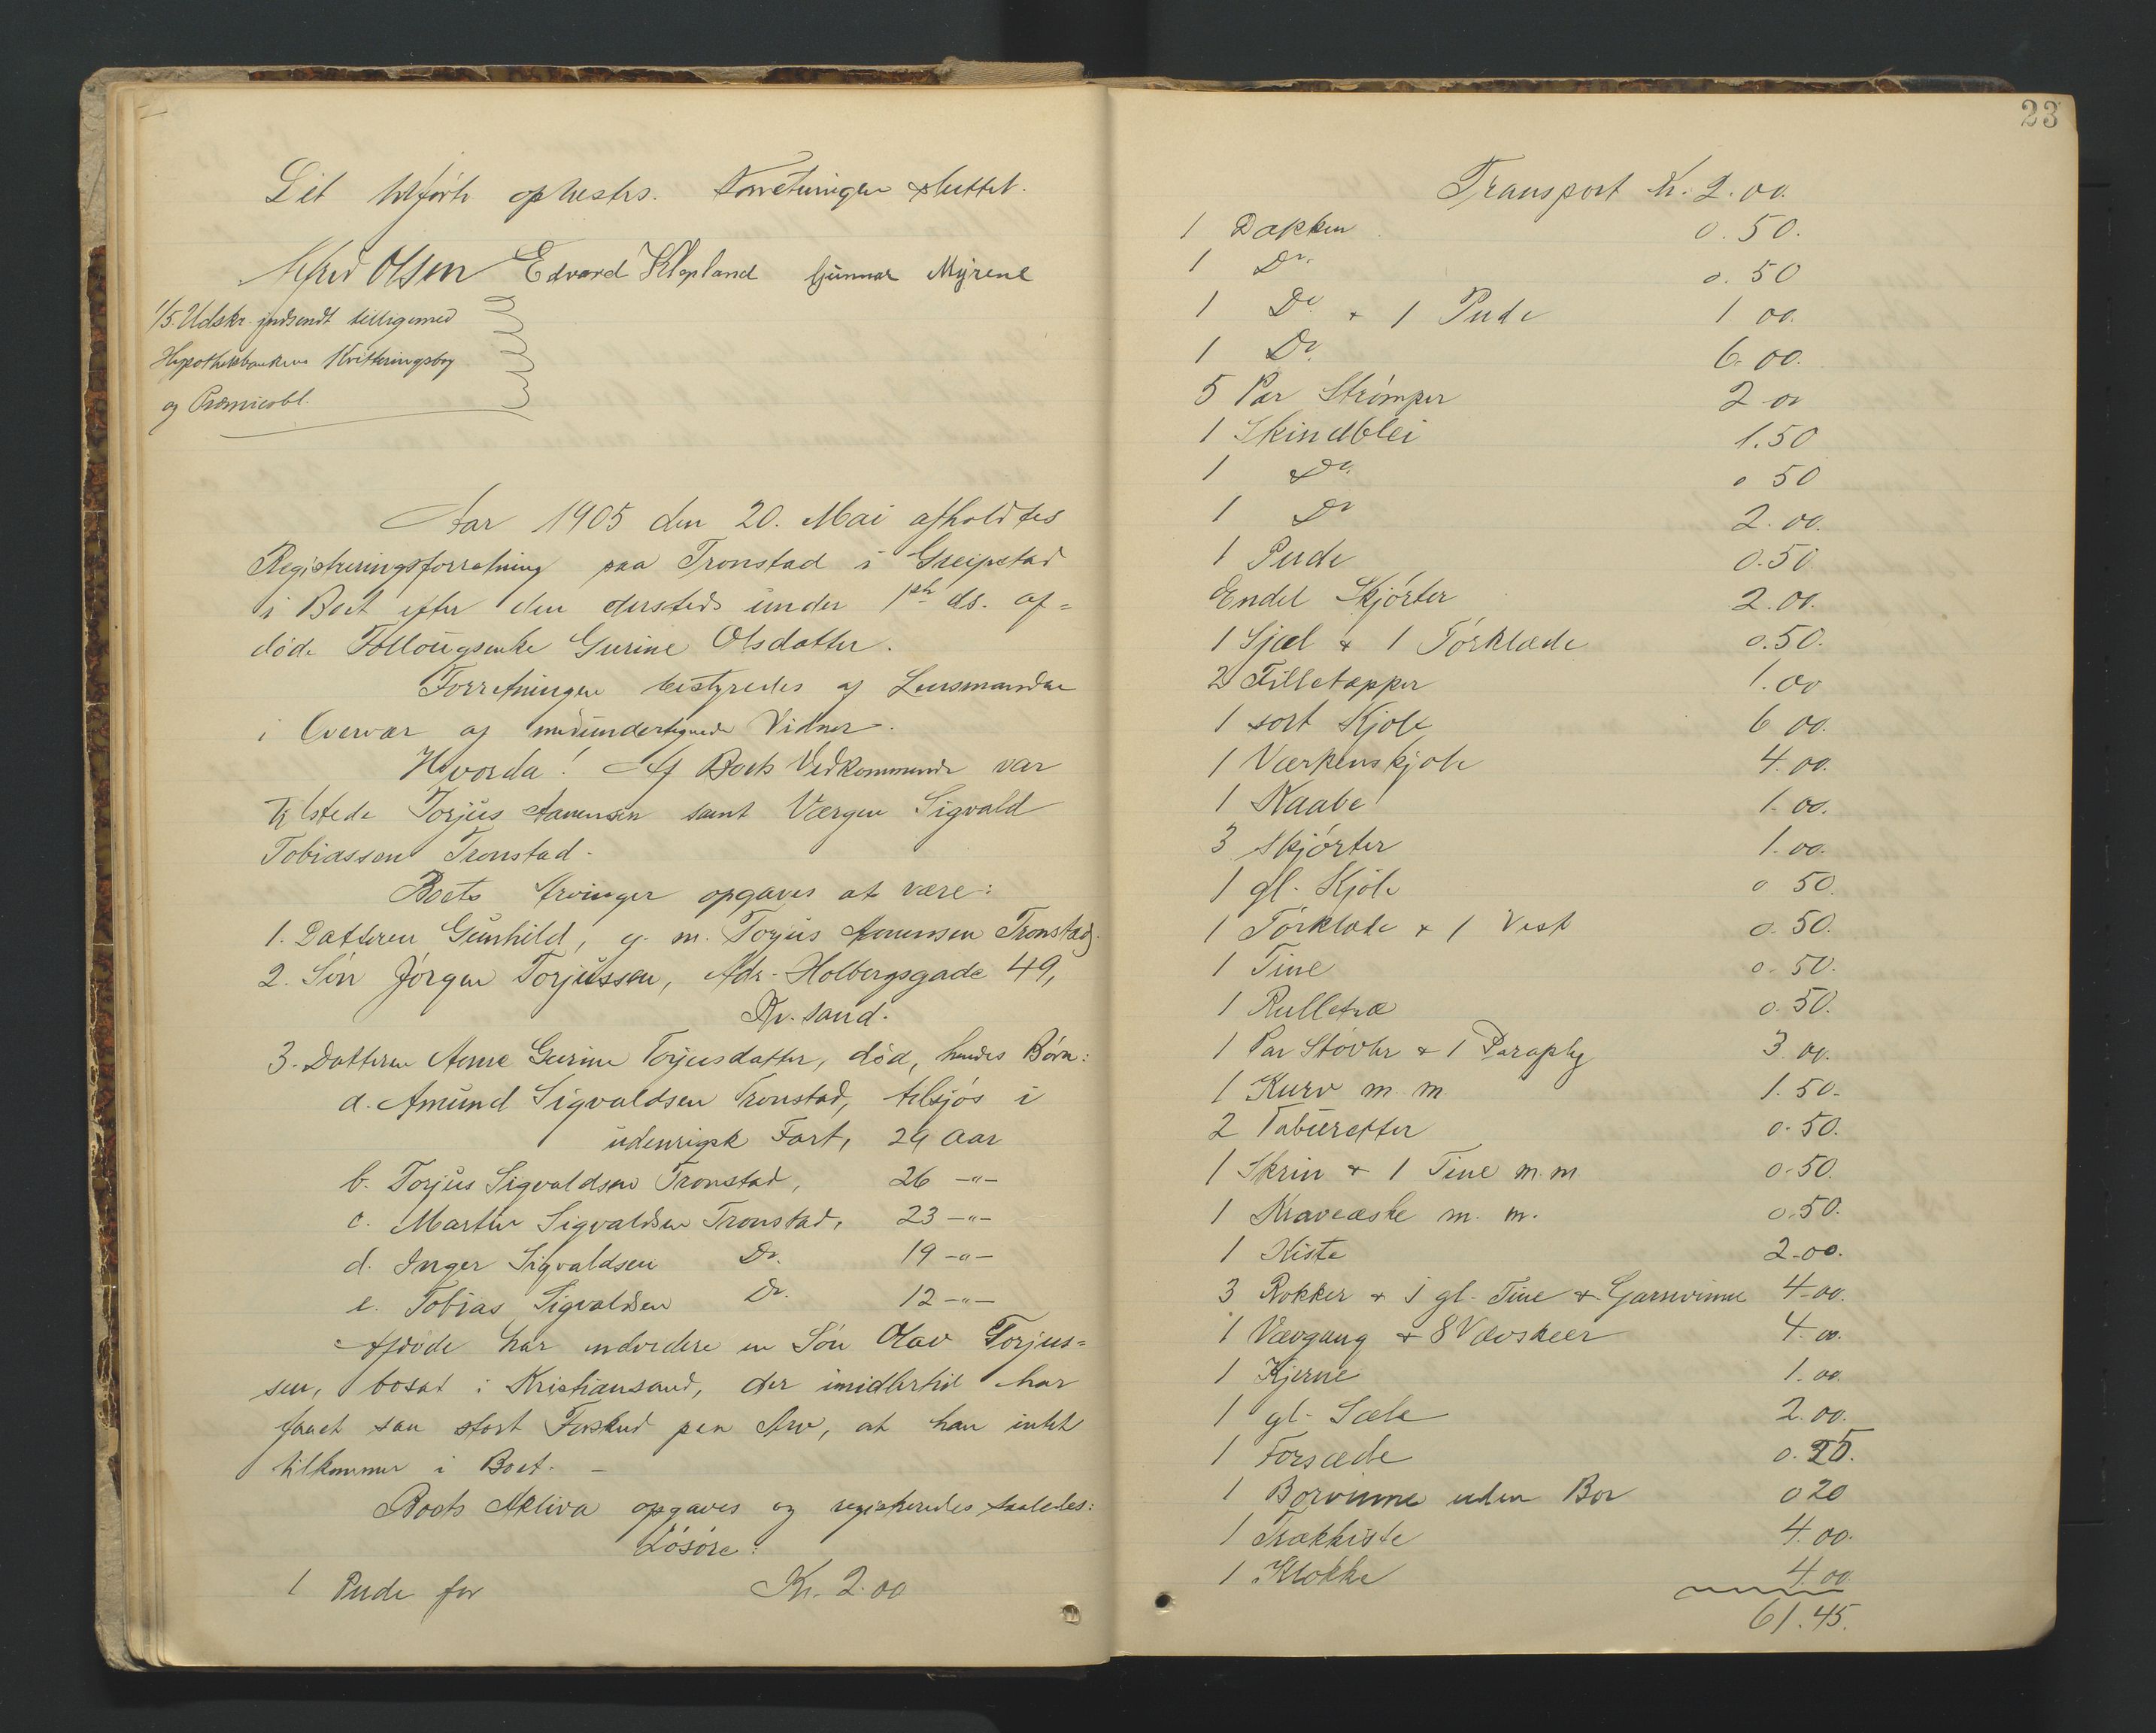 Det tilførte oplæstes. Forretningen sluttet.
Alfred Olsen Edvard Klepland Gunnar Myrene
1/5. Udskr. indsendt tilligemed
Hypothekbankens Kvitteringsbog
og Præmieobl.
Aar 1905 den 20. Mai afholdtes
Registreringsforretning paa Tronstad i Greipstad
i Boet efter den dersteds under 1ste ds. af=
døde Follougsenke Gurine Olsdatter.
Forretningen bestyredes af Lensmanden
i Overvær af medundertegnede Vidner.
Hvorda! Af Boets Vedkommende var
tilstede Torjus Aanensen samt Værgen Sigvald
Tobiassen Tronstad.
Boets Arvinger opgaves at være:
1. Datteren Gunhild, g. m. Torjus Aanensen Tronstad.
2. Søn Jørgen Torjussen, Adr. Holbergsgade 49,
Kr.sand.
3. Datteren Anne Gurine Torjusdatter, død, hendes Børn:
a. Amund Sigvaldsen Tronstad, tilsjøs i
udenrigsk Fart, 29 Aar
b. Torjus Sigvaldsen Tronstad, 26 -"-
c. Martin Sigvaldsen Tronstad, 23 -"-
d. Inger Sigvaldsen Do. 19 -"-
e. Tobias Sigvaldsen Do. 12 -"-
Afdøde har endvidere en Søn Olav Torjus=
sen, bosat i Kristiansand, der imidlertid har
faaet saa stort Forskud paa Arv, at han intet
tilkommer i Boet. -
Boets Aktiva opgaves og registreredes saaledes:
Løsøre:
1 Pude for Kr. 2.00
23
Transport Kr. 2.00.
1 Dækken 0.50.
1 Do. 0.50
1 Do. + 1 Pude 1 00.
1 Do. 6.00.
5 Par Strømper 2 00
1 Skindblei 1.50
1 Do. 0 50
1 Do 2.00.
1 Pude 0.50
Endel Skjørter 2.00.
1 Sjal + 1 Tørklæde 0.50.
2 Filletæpper 1.00
1 sort Kjole 6 00.
1 Værkenskjole 4.00.
1 Kaabe 1.00.
3 Skjørter 1.00.
1 gl. Kjole 0 50.
1 Tørklæde + 1 Vest 0.50.
1 Tine 0.50.
1 Rulletræ 0.50.
1 Par Støvler + 1 Paraply 3.00.
1 Kurv m. m. 1.50.
2 Taburetter 0.50.
1 Skrin + 1 Tine m. m 0.50.
1 Kraveæske m. m. 0.50.
1 Kiste 2.00.
3 Rokker + 1 gl. Tine + Garnvinne 4.00.
1 Vævgang + 8 Vævskeer 4.00.
1 Kjerne 1.00.
1 gl. Sæle 2.00.
1 Forsæde 0.25.
1 Borvinne uden Bor 0 20
1 Trækkiste 4.00.
1 Klokke 4.00
61.45.